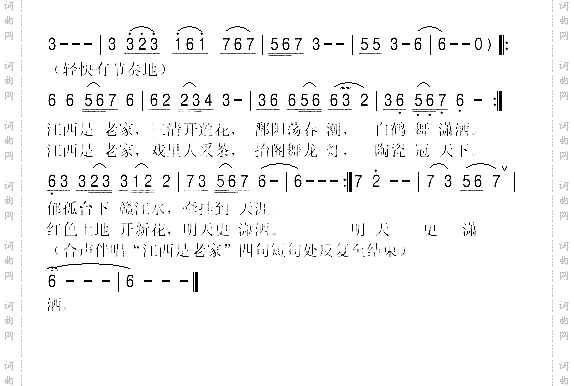 3 - - - | 3 323 161 767 | 567 3 - - | 55 3 - 6 | 6 - - 0 ) :
（轻快有节奏地）
6 6 567 6 | 62 234 3 - | 36 656 63 2 | 36 567 6 - :
江西是 老家，三清开莲花， 鄱阳荡春 潮， 白鹤 舞 潇洒。
江西是 老家，戏里人采茶， 抬阁舞龙 灯， 陶瓷 冠 天下。
63 323 312 2 | 73 567 6 - | 6 - - - : 7 2 - - | 7 3 56 7 |
郁孤台下 赣江水，牵挂到 天涯
红色土地 开新花，明天更 潇洒。 明 天 更 潇
（合声伴唱“江西是老家”四句短句处反复至结束）
6 - - - | 6 - - -
洒。
词曲网
词曲网
词曲网
词曲网
词曲网
词曲网
词曲网
词曲网